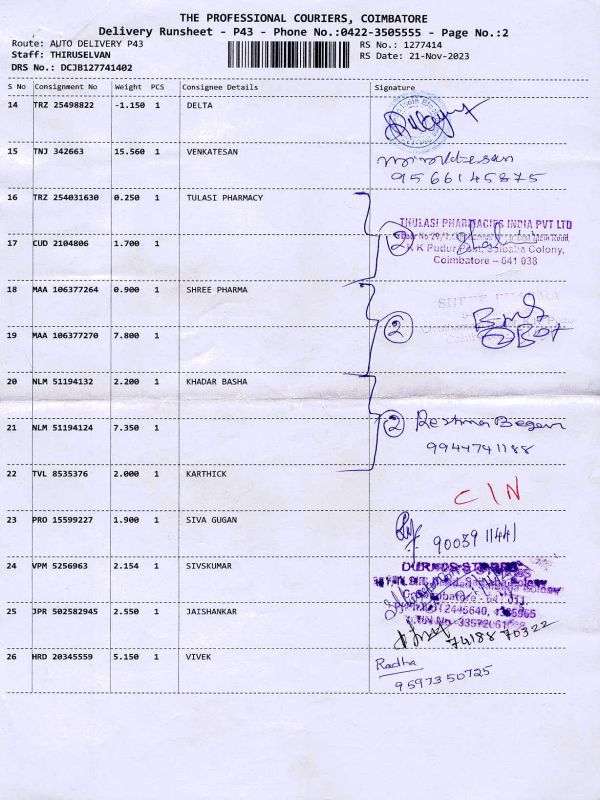 THE PROFESSIONAL COURIERS, COIMBATORE
Delivery Runsheet - P43 - Phone No.:0422-3505555 - Page No.:2
Route: AUTO DELIVERY P43 RS No.: 1277414
Staff: THIRUSELVAN RS Date: 21-Nov-2023
DRS No.: DCJB127741402
S No Consignment No Weight PCS Consignee Details Signature
14 TRZ 25498822 -1.150 1 DELTA
15 TNJ 342663 15.560 1 VENKATESAN
9566145875
16 TRZ 254031630 0.250 1 TULASI PHARMACY
THULASI PHARMACIES INDIA PVT LTD
17 CUD 2104806 1.700 1 2
K K Pudur Post, Saibaba Colony,
Coimbatore – 641 038
18 MAA 106377264 0.900 1 SHREE PHARMA
19 MAA 106377270 7.800 1 2
20 NLM 51194132 2.200 1 KHADAR BASHA
21 NLM 51194124 7.350 1 2 Reshma Begam
9944741188
22 TVL 8535376 2.000 1 KARTHICK
C/N
23 PRO 15599227 1.900 1 SIVA GUGAN
9003911441
24 VPM 5256963 2.154 1 SIVSKUMAR
25 JPR 502582945 2.550 1 JAISHANKAR
7418870322
26 HRD 20345559 5.150 1 VIVEK Radha
9597350725